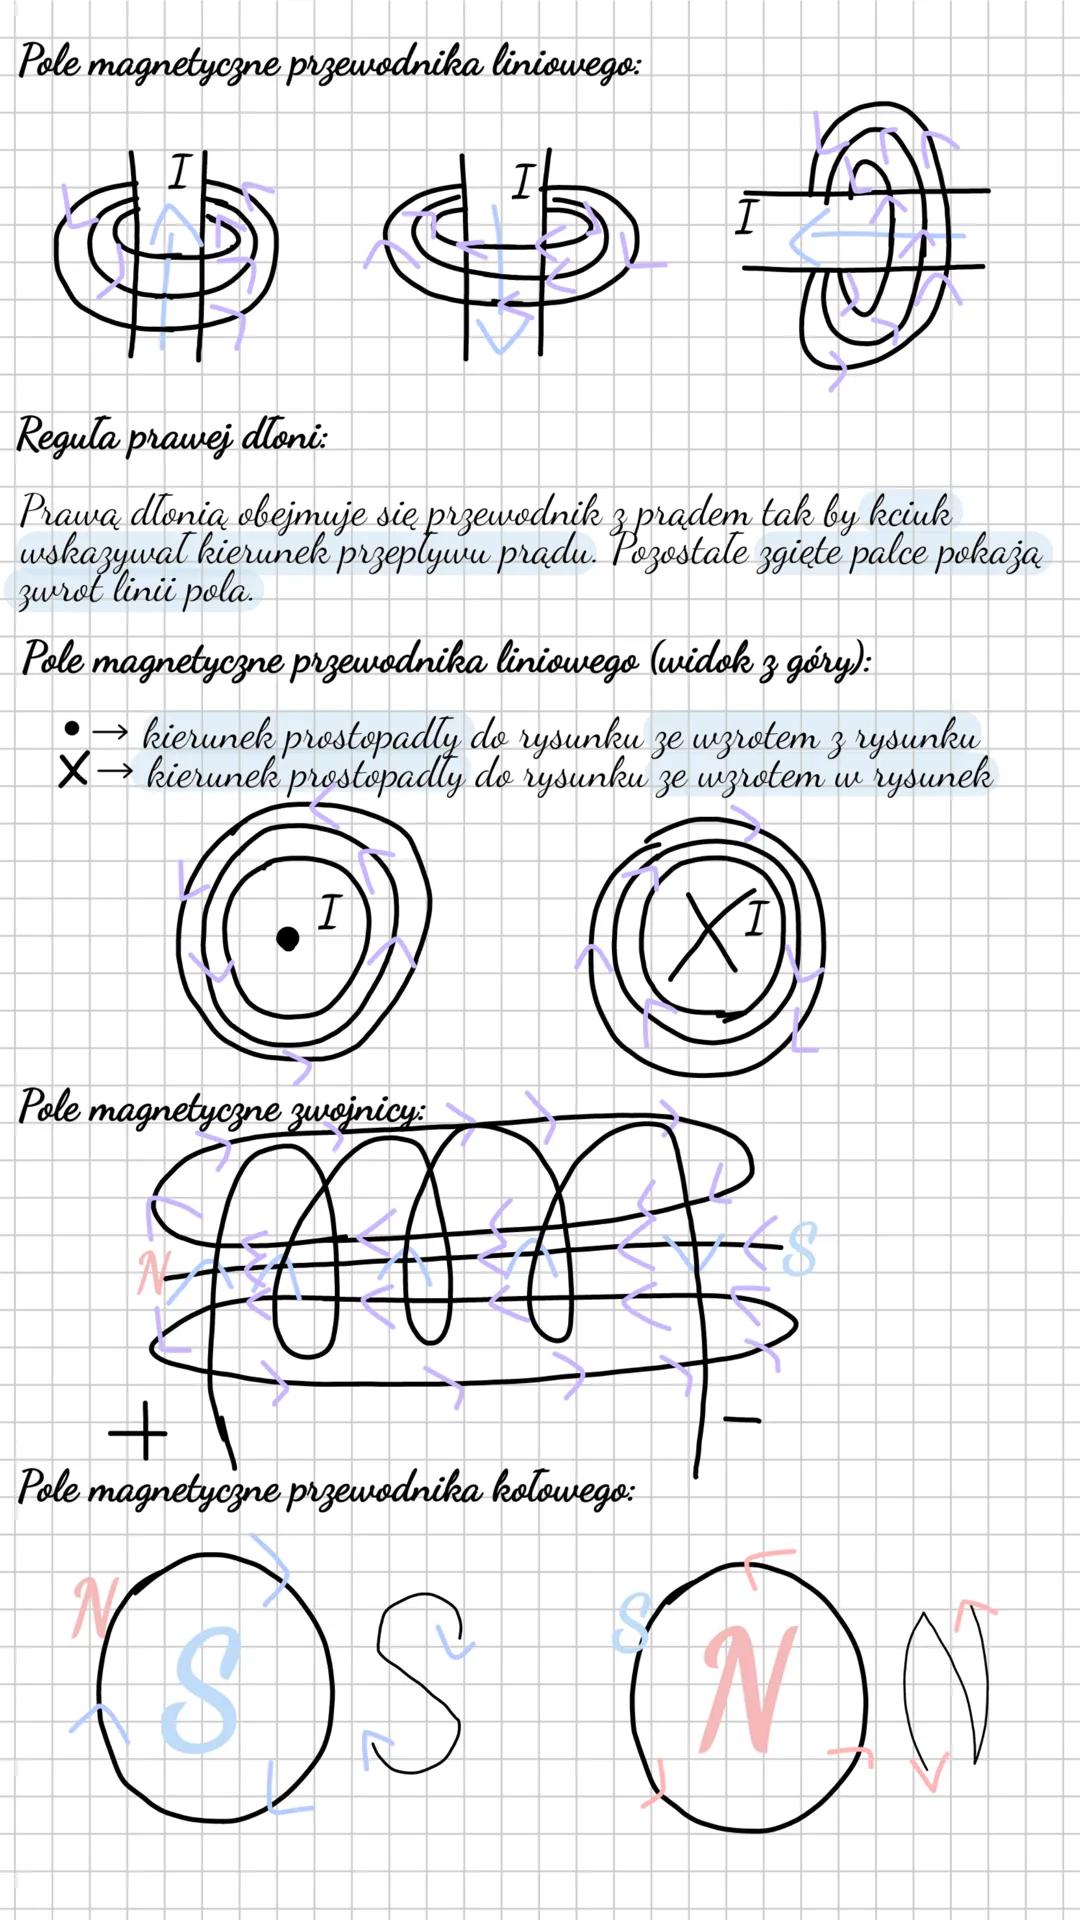 Pole magnetyczne przewodnika liniowego:
I
I
I
Reguła prawej dłoni:
Prawą dłonią obejmuje się przewodnik z prądem tak by kciuk
wskazywał kierunek przepływu prądu. Pozostałe zgięte palce pokażą
zwrot linii pola.
Pole magnetyczne przewodnika liniowego (widok z góry):
• → kierunek prostopadły do rysunku ze wzrotem z rysunku
X → kierunek prostopadły do rysunku ze wzrotem w rysunek
I
I
Pole magnetyczne zwojnicy:
N
S
+ −
Pole magnetyczne przewodnika kołowego:
N S S
S N N